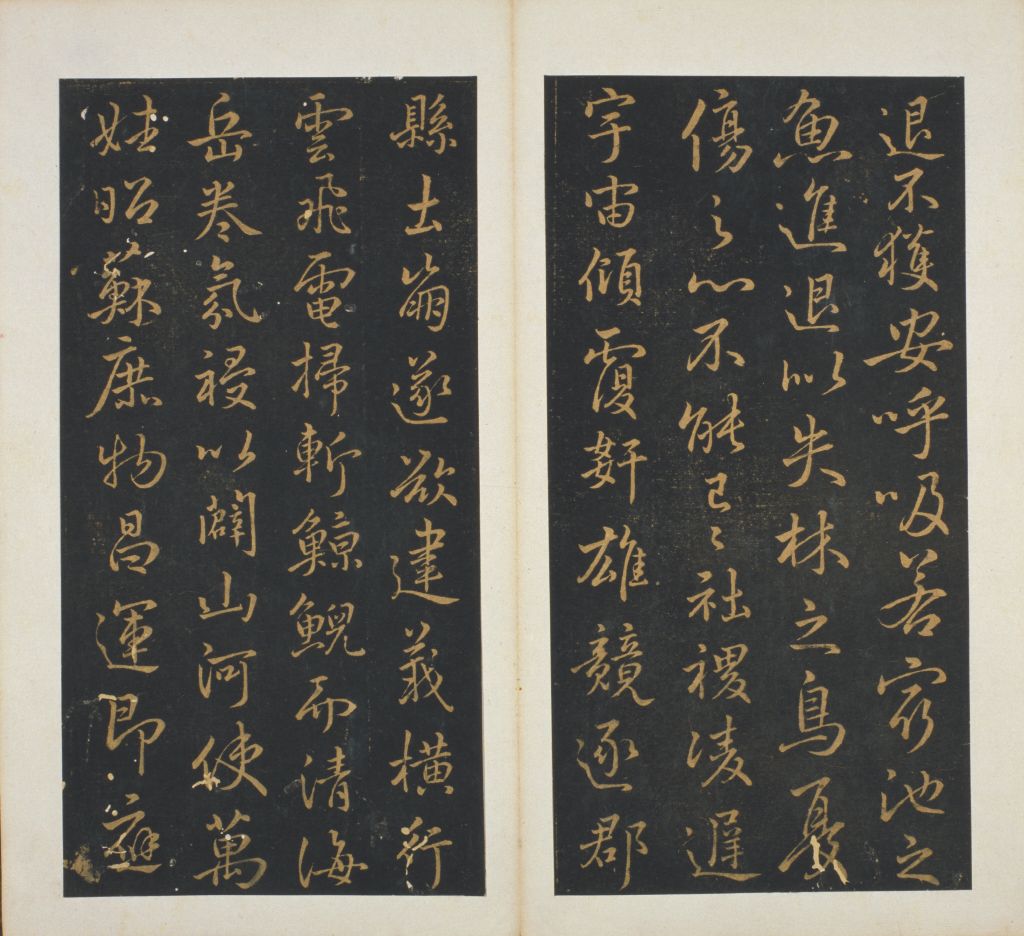 退不獲安呼吸若窮池之
魚進退以失林之鳥憂
傷之心不能已已社稷凌遲
宇宙傾覆奸雄競逐郡
縣土崩遂欲建義橫行
雲飛電掃斬鯨鯢而清海
岳卷氛祲以闢山河使萬
姓昭蘇庶物昌運即迎